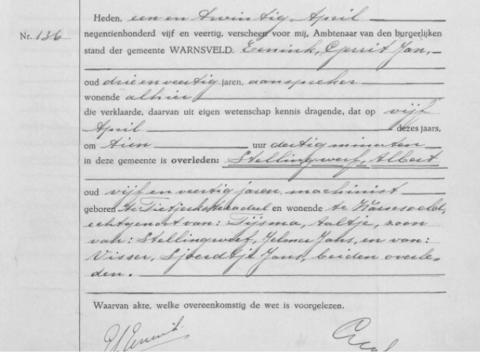 Heden, een en twintig April
Nr. 136 negentienhonderd vijf en veertig, verscheen voor mij, Ambtenaar van den burgerlijken
stand der gemeente WARNSVELD. Eenink, Gerrit Jan,
oud drie en veertig jaren, aanspreker
wonende alhier
die verklaarde, daarvan uit eigen wetenschap kennis dragende, dat op vijf
April dezes jaars,
om tien uur dertig minuten
in deze gemeente is overleden: Stellingwerf, Albert
oud vijf en veertig jaren, machinist
geboren te Tietjerksteradeel en wonende te Warnsveld,
echtgenoot van: Tijsma, Aaltje, zoon
van: Stellingwerf, Jelmer Jans, en van:
Visser, Sjoerdtje Jans, beiden overle-
den.
Waarvan akte, welke overeenkomstig de wet is voorgelezen.
Eenink